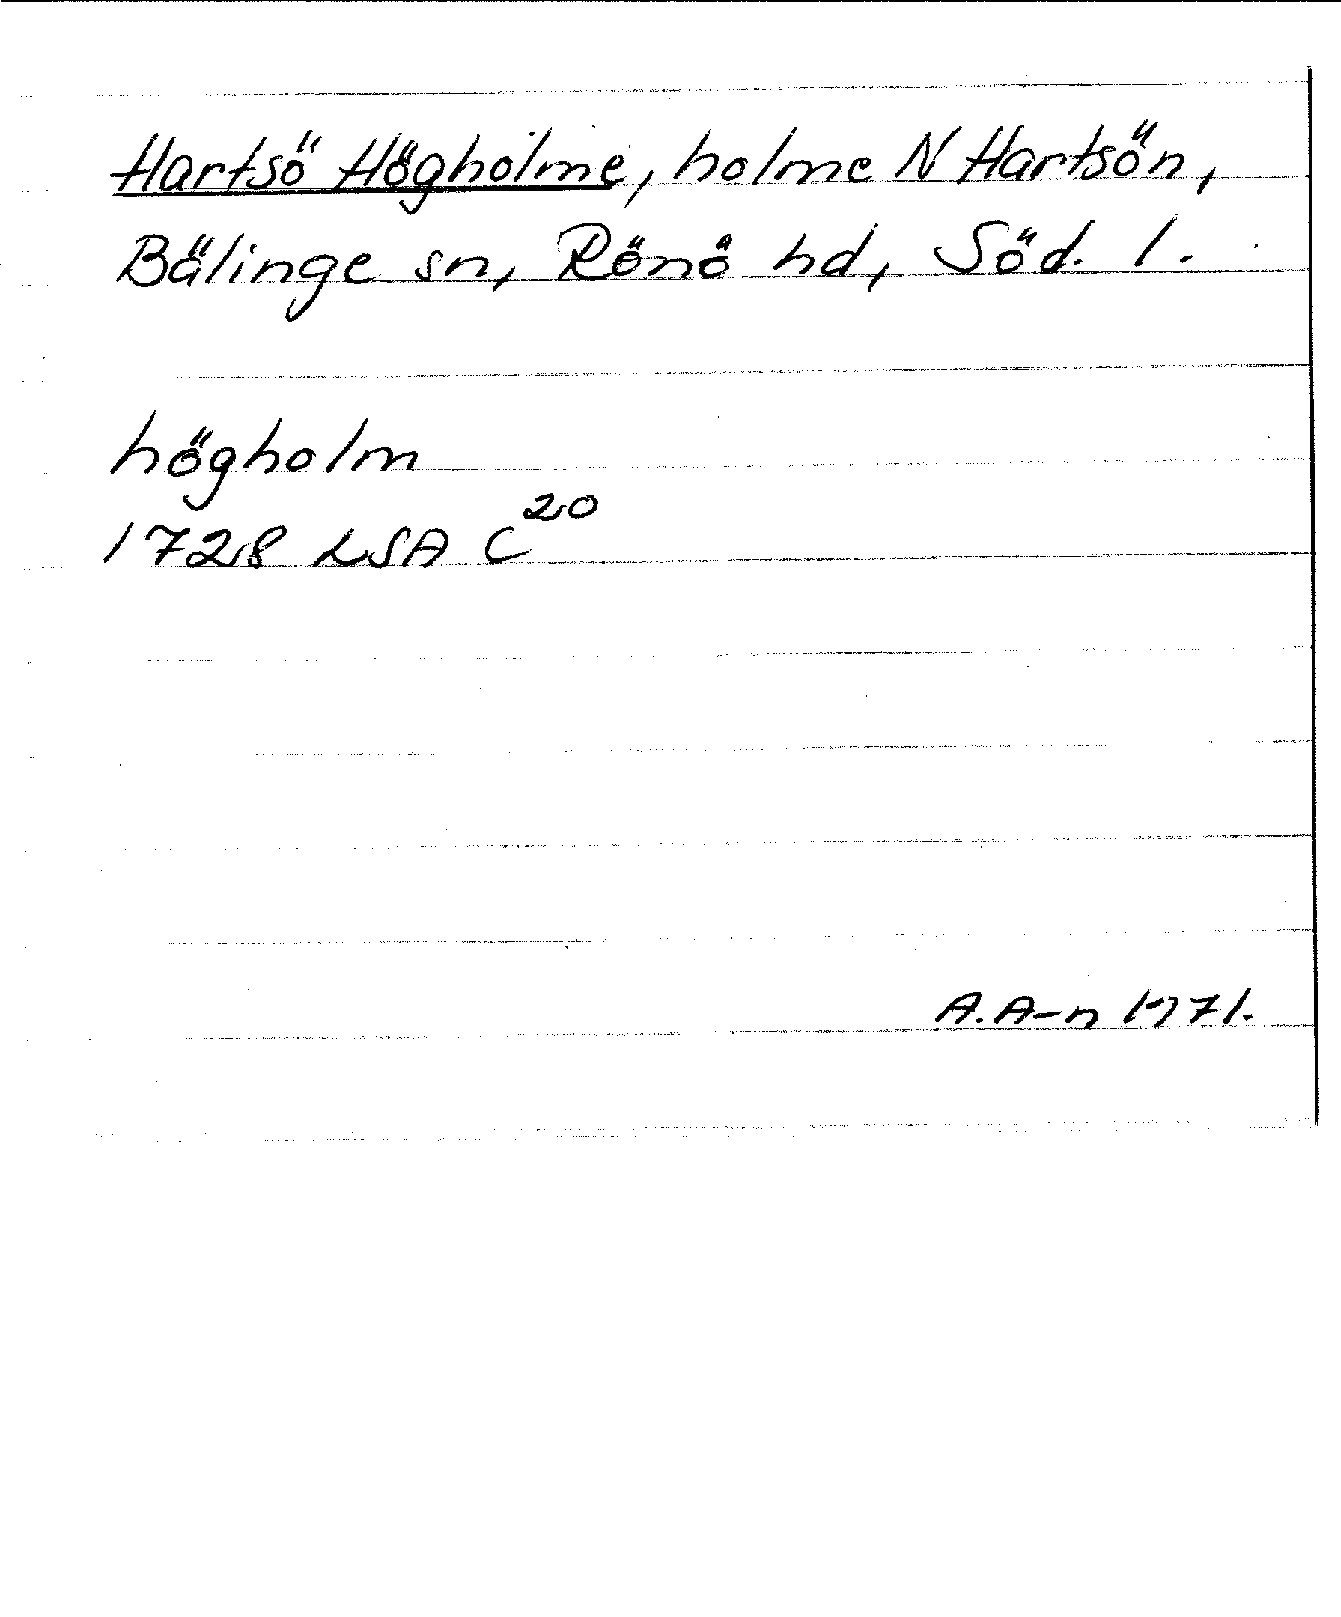 Hartsö Högholme, holme N Hartsön,
Bälinge sn, Rönö hd, Söd. l.
högholm
1728 LSA C20
A. A-n 1971.